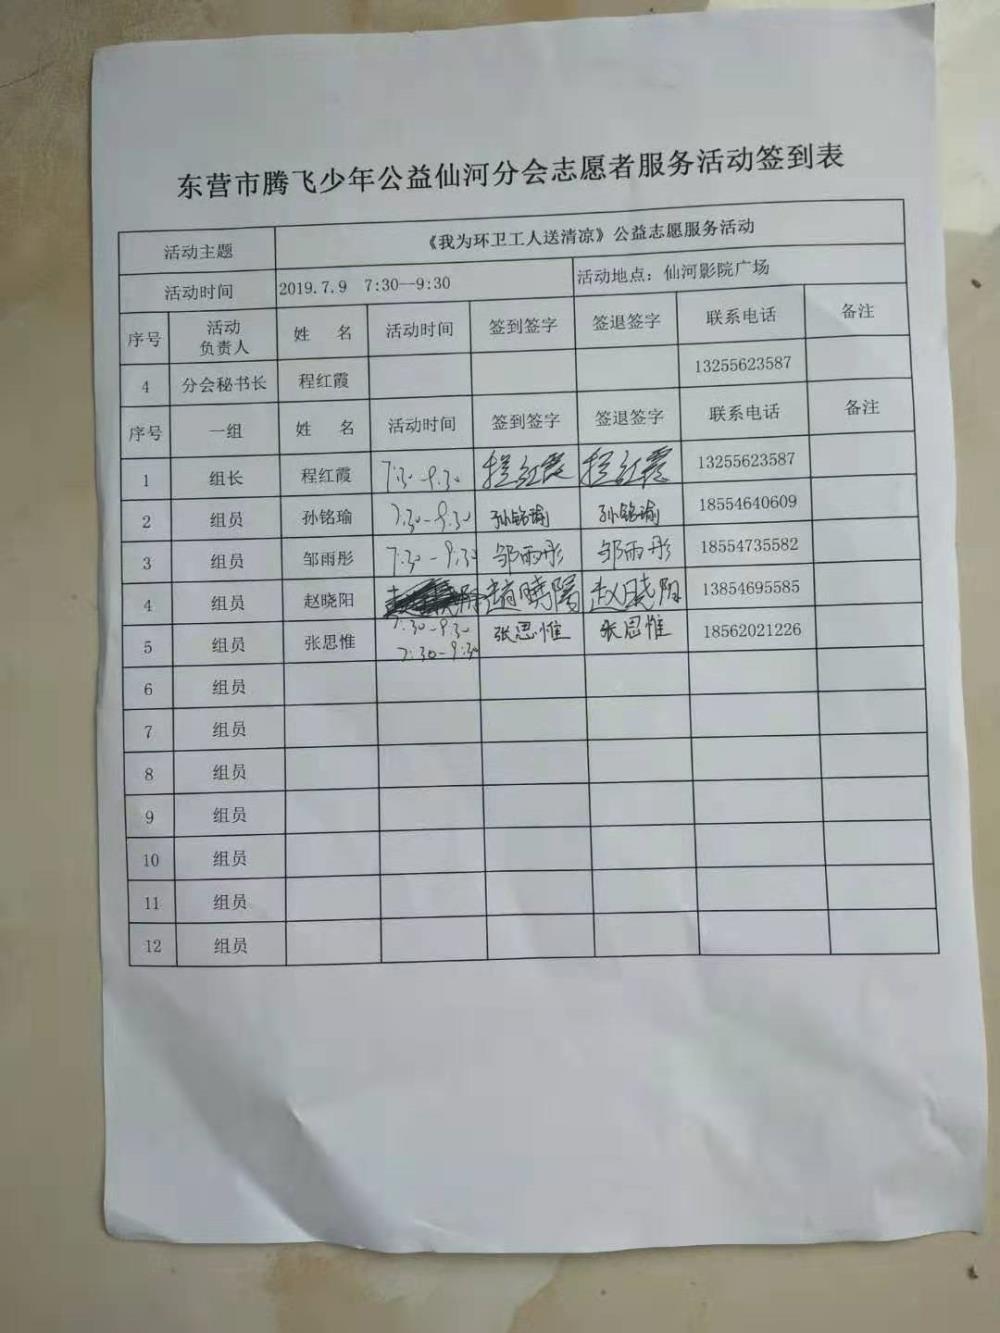 东营市腾飞少年公益仙河分会志愿者服务活动签到表
活动主题 《我为环卫工人送清凉》公益志愿服务活动
活动时间 2019.7.9 7:30--9:30 活动地点：仙河影院广场
序号 活动负责人 姓 名 活动时间 签到签字 签退签字 联系电话 备注
4 分会秘书长 程红霞 13255623587
序号 一组 姓 名 活动时间 签到签字 签退签字 联系电话 备注
1 组长 程红霞 7:30-9:30 程红霞 程红霞 13255623587
2 组员 孙铭瑜 7:30-9:30 孙铭瑜 孙铭瑜 18554640609
3 组员 邹雨彤 7:30-9:30 邹雨彤 邹雨彤 18554735582
4 组员 赵晓阳 7:30-9:30 趙曉陽 赵晓阳 13854695585
5 组员 张思惟 7:30-9:30 张思惟 张思惟 18562021226
6 组员
7 组员
8 组员
9 组员
10 组员
11 组员
12 组员